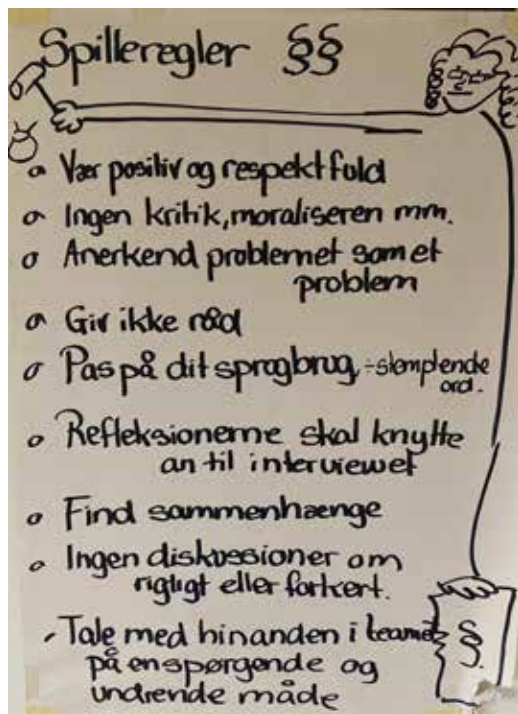 Spilleregler §§
Vær positiv og respektfuld
Ingen kritik, moraliseren mm.
Anerkend problemet som et
problem
Giv ikke råd
Pas på dit sprogbrug, ÷ stemplende
ord.
Refleksionerne skal knytte
an til interviewet
Find sammenhænge
Ingen diskussioner om
rigtigt eller forkert.
Tale med hinanden i teamet
på en spørgende og
undrende måde
§.